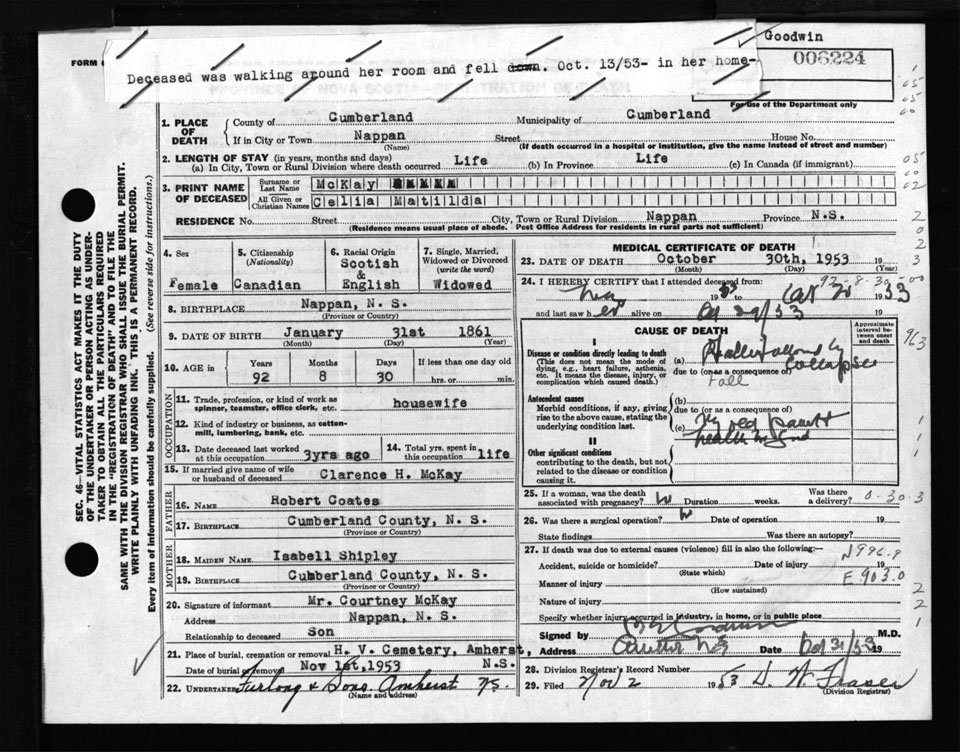 Goodwin
006224
FORM
Deceased was walking around her room and fell down. Oct. 13/53- in her home-
For use of the Department only
1. PLACE OF DEATH
County of Cumberland Municipality of Cumberland
If in City or Town Nappan Street House No.
(Name) (If death occurred in a hospital or institution, give the name instead of street and number)
2. LENGTH OF STAY (in years, months and days)
(a) In City, Town or Rural Division where death occurred Life (b) In Province Life (c) In Canada (if immigrant)
3. PRINT NAME OF DECEASED
Surname or Last Name McKay
All Given or Christian Names Celia Matilda
RESIDENCE No. Street City, Town or Rural Division Nappan Province N.S.
(Residence means usual place of abode. Post Office Address for residents in rural parts not sufficient)
4. Sex Female
5. Citizenship (Nationality) Canadian
6. Racial Origin Scotish & English
7. Single, Married, Widowed or Divorced (write the word) Widowed
8. BIRTHPLACE Nappan, N. S.
(Province or Country)
9. DATE OF BIRTH January 31st 1861
(Month) (Day) (Year)
10. AGE in Years Months Days If less than one day old
92 8 30 hrs. or min.
OCCUPATION
11. Trade, profession, or kind of work as spinner, teamster, office clerk, etc. housewife
12. Kind of industry or business, as cotton-mill, lumbering, bank, etc.
13. Date deceased last worked at this occupation 3yrs ago
14. Total yrs. spent in this occupation life
15. If married give name of wife or husband of deceased Clarence H. McKay
FATHER
16. NAME Robert Coates
17. BIRTHPLACE Cumberland County, N. S.
(Province or Country)
MOTHER
18. MAIDEN NAME Isabell Shipley
19. BIRTHPLACE Cumberland County, N. S.
(Province or Country)
20. Signature of informant Mr. Courtney McKay
Address Nappan, N. S.
Relationship to deceased Son
21. Place of burial, cremation or removal H. V. Cemetery, Amherst, N.S.
Date of burial or removal Nov 1st,1953
22. UNDERTAKER Furlong & Sons. Amherst NS.
(Name and address)
MEDICAL CERTIFICATE OF DEATH
23. DATE OF DEATH October 30th, 1953 19
(Month) (Day) (Year)
24. I HEREBY CERTIFY that I attended deceased from:
19 to 1953
and last saw her alive on 29/53 19
CAUSE OF DEATH
Approximate interval between onset and death
I
Disease or condition directly leading to death
(This does not mean the mode of dying, e.g., heart failure, asthenia, etc. It means the disease, injury, or complication which caused death.)
(a) followed by collapse
due to (or as a consequence of)
Fall
Antecedent causes
Morbid conditions, if any, giving rise to the above cause, stating the underlying condition last.
(b)
due to (or as a consequence of)
(c)
II
Other significant conditions
contributing to the death, but not related to the disease or condition causing it.
25. If a woman, was the death associated with pregnancy? Duration weeks. Was there a delivery?
26. Was there a surgical operation? Date of operation 19
State findings Was there an autopsy?
27. If death was due to external causes (violence) fill in also the following:—
N996.9
Accident, suicide or homicide? Date of injury 19
(State which)
E903.0
Manner of injury
(How sustained)
Nature of injury
Specify whether injury occurred in industry, in home, or in public place
Signed by M.D.
Address Date Oct 31/53 19
28. Division Registrar's Record Number
29. Filed Nov 2 1953 D. W. Fraser
(Division Registrar)
SEC. 46—VITAL STATISTICS ACT MAKES IT THE DUTY
OF THE UNDERTAKER OR PERSON ACTING AS UNDER-
TAKER TO OBTAIN ALL THE PARTICULARS REQUIRED
IN THE "REGISTRATION OF DEATH" AND TO FILE THE
SAME WITH THE DIVISION REGISTRAR WHO SHALL ISSUE THE BURIAL PERMIT.
WRITE PLAINLY WITH UNFADING INK. THIS IS A PERMANENT RECORD.
Every item of information should be carefully supplied. (See reverse side for instructions.)